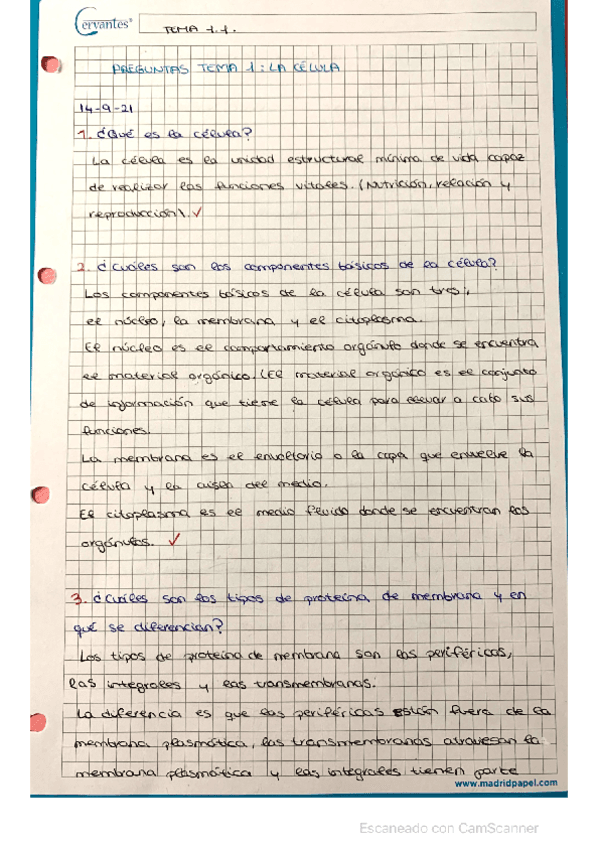 Cervantes®
TEMA 1.1.
PREGUNTAS TEMA 1: LA CÉLULA
14-9-21
1. ¿Qué es la célula?
La célula es la unidad estructural mínima de vida capaz
de realizar las funciones vitales. (Nutrición, relación y
reproducción). ✓
2. ¿Cuáles son los componentes básicos de la célula?
Los componentes básicos de la célula son tres;
el núcleo, la membrana y el citoplasma.
El núcleo es el comportamiento orgánulo donde se encuentra
el material orgánico. (El material orgánico es el conjunto
de información que tiene la célula para llevar a cabo sus
funciones.
La membrana es el envoltorio o la capa que envuelve la
célula y la aisla del medio.
El citoplasma es el medio fluido donde se encuentran los
orgánulos. ✓
3. ¿Cuáles son los tipos de proteína de membrana y en
qué se diferencian?
Los tipos de proteína de membrana son las periféricas,
las integrales y las transmembranas.
La diferencia es que las periféricas están fuera de la
membrana plasmática, las transmembranas atraviesan la
membrana plasmática y las integrales tienen parte
www.madridpapel.com
Escaneado con CamScanner